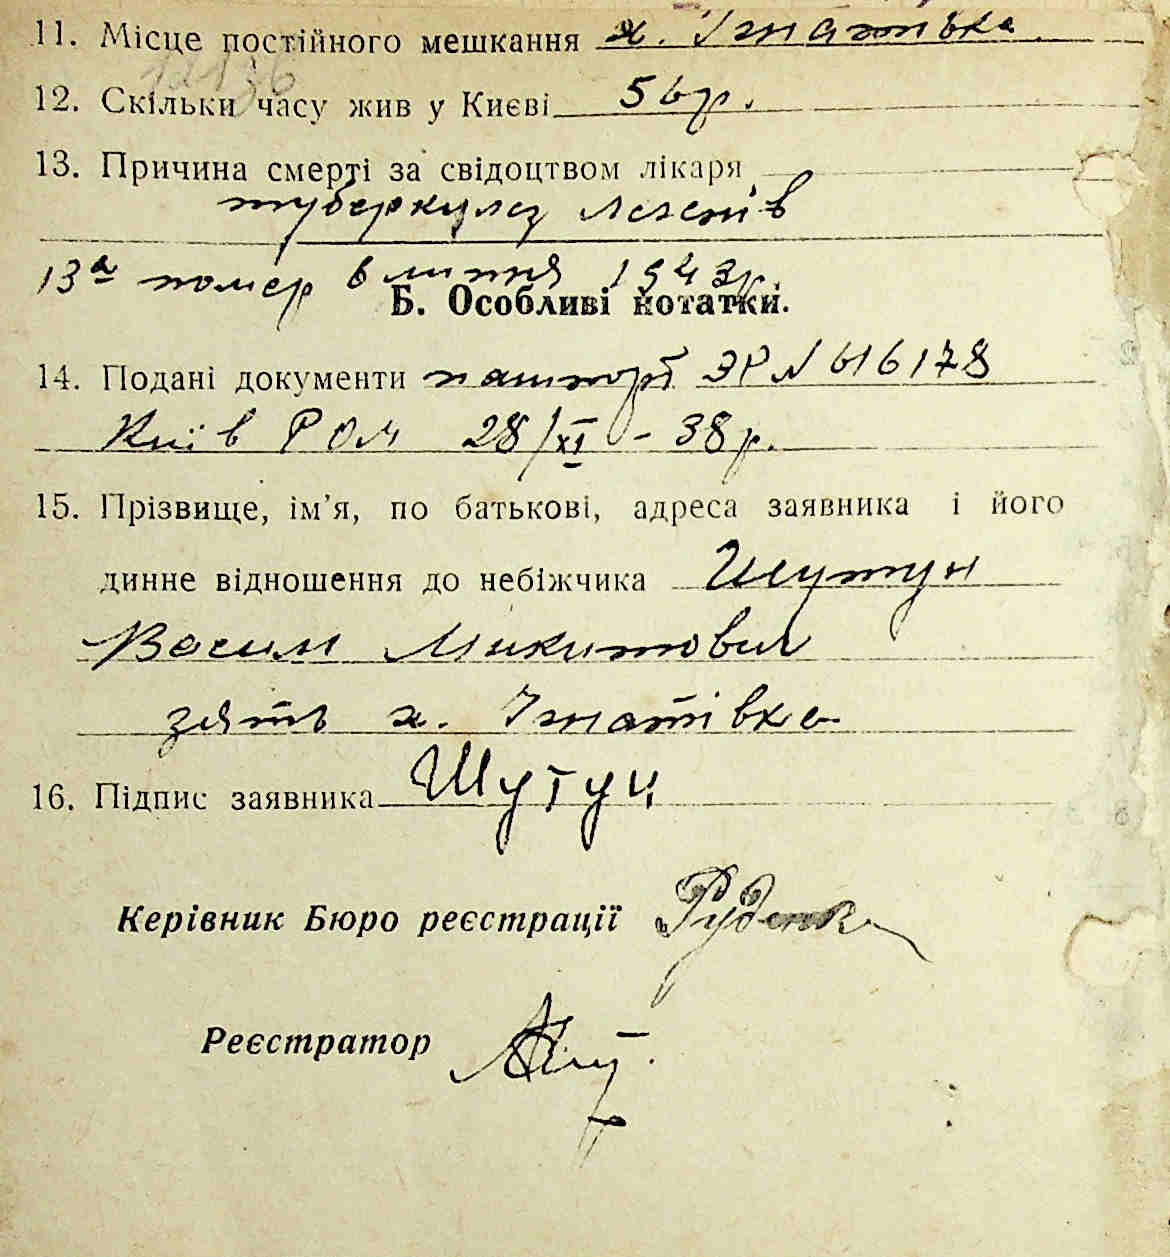 11. Місце постійного мешкання х. Ігнатівка
12136
12. Скільки часу жив у Києві 56 р.
13. Причина смерті за свідоцтвом лікаря
туберкульоз легенів
13а помер 6 липня 1943 р.
Б. Особливі нотатки.
14. Подані документи пашпорт ЭР N 616178
Київ РОМ 28/XI - 38 р.
15. Прізвище, ім’я, по батькові, адреса заявника і його
динне відношення до небіжчика Шутун
Василь Микитович
зять х. Ігнатівка
16. Підпис заявника Шутун
Керівник Бюро реєстрації Руденко
Реєстратор